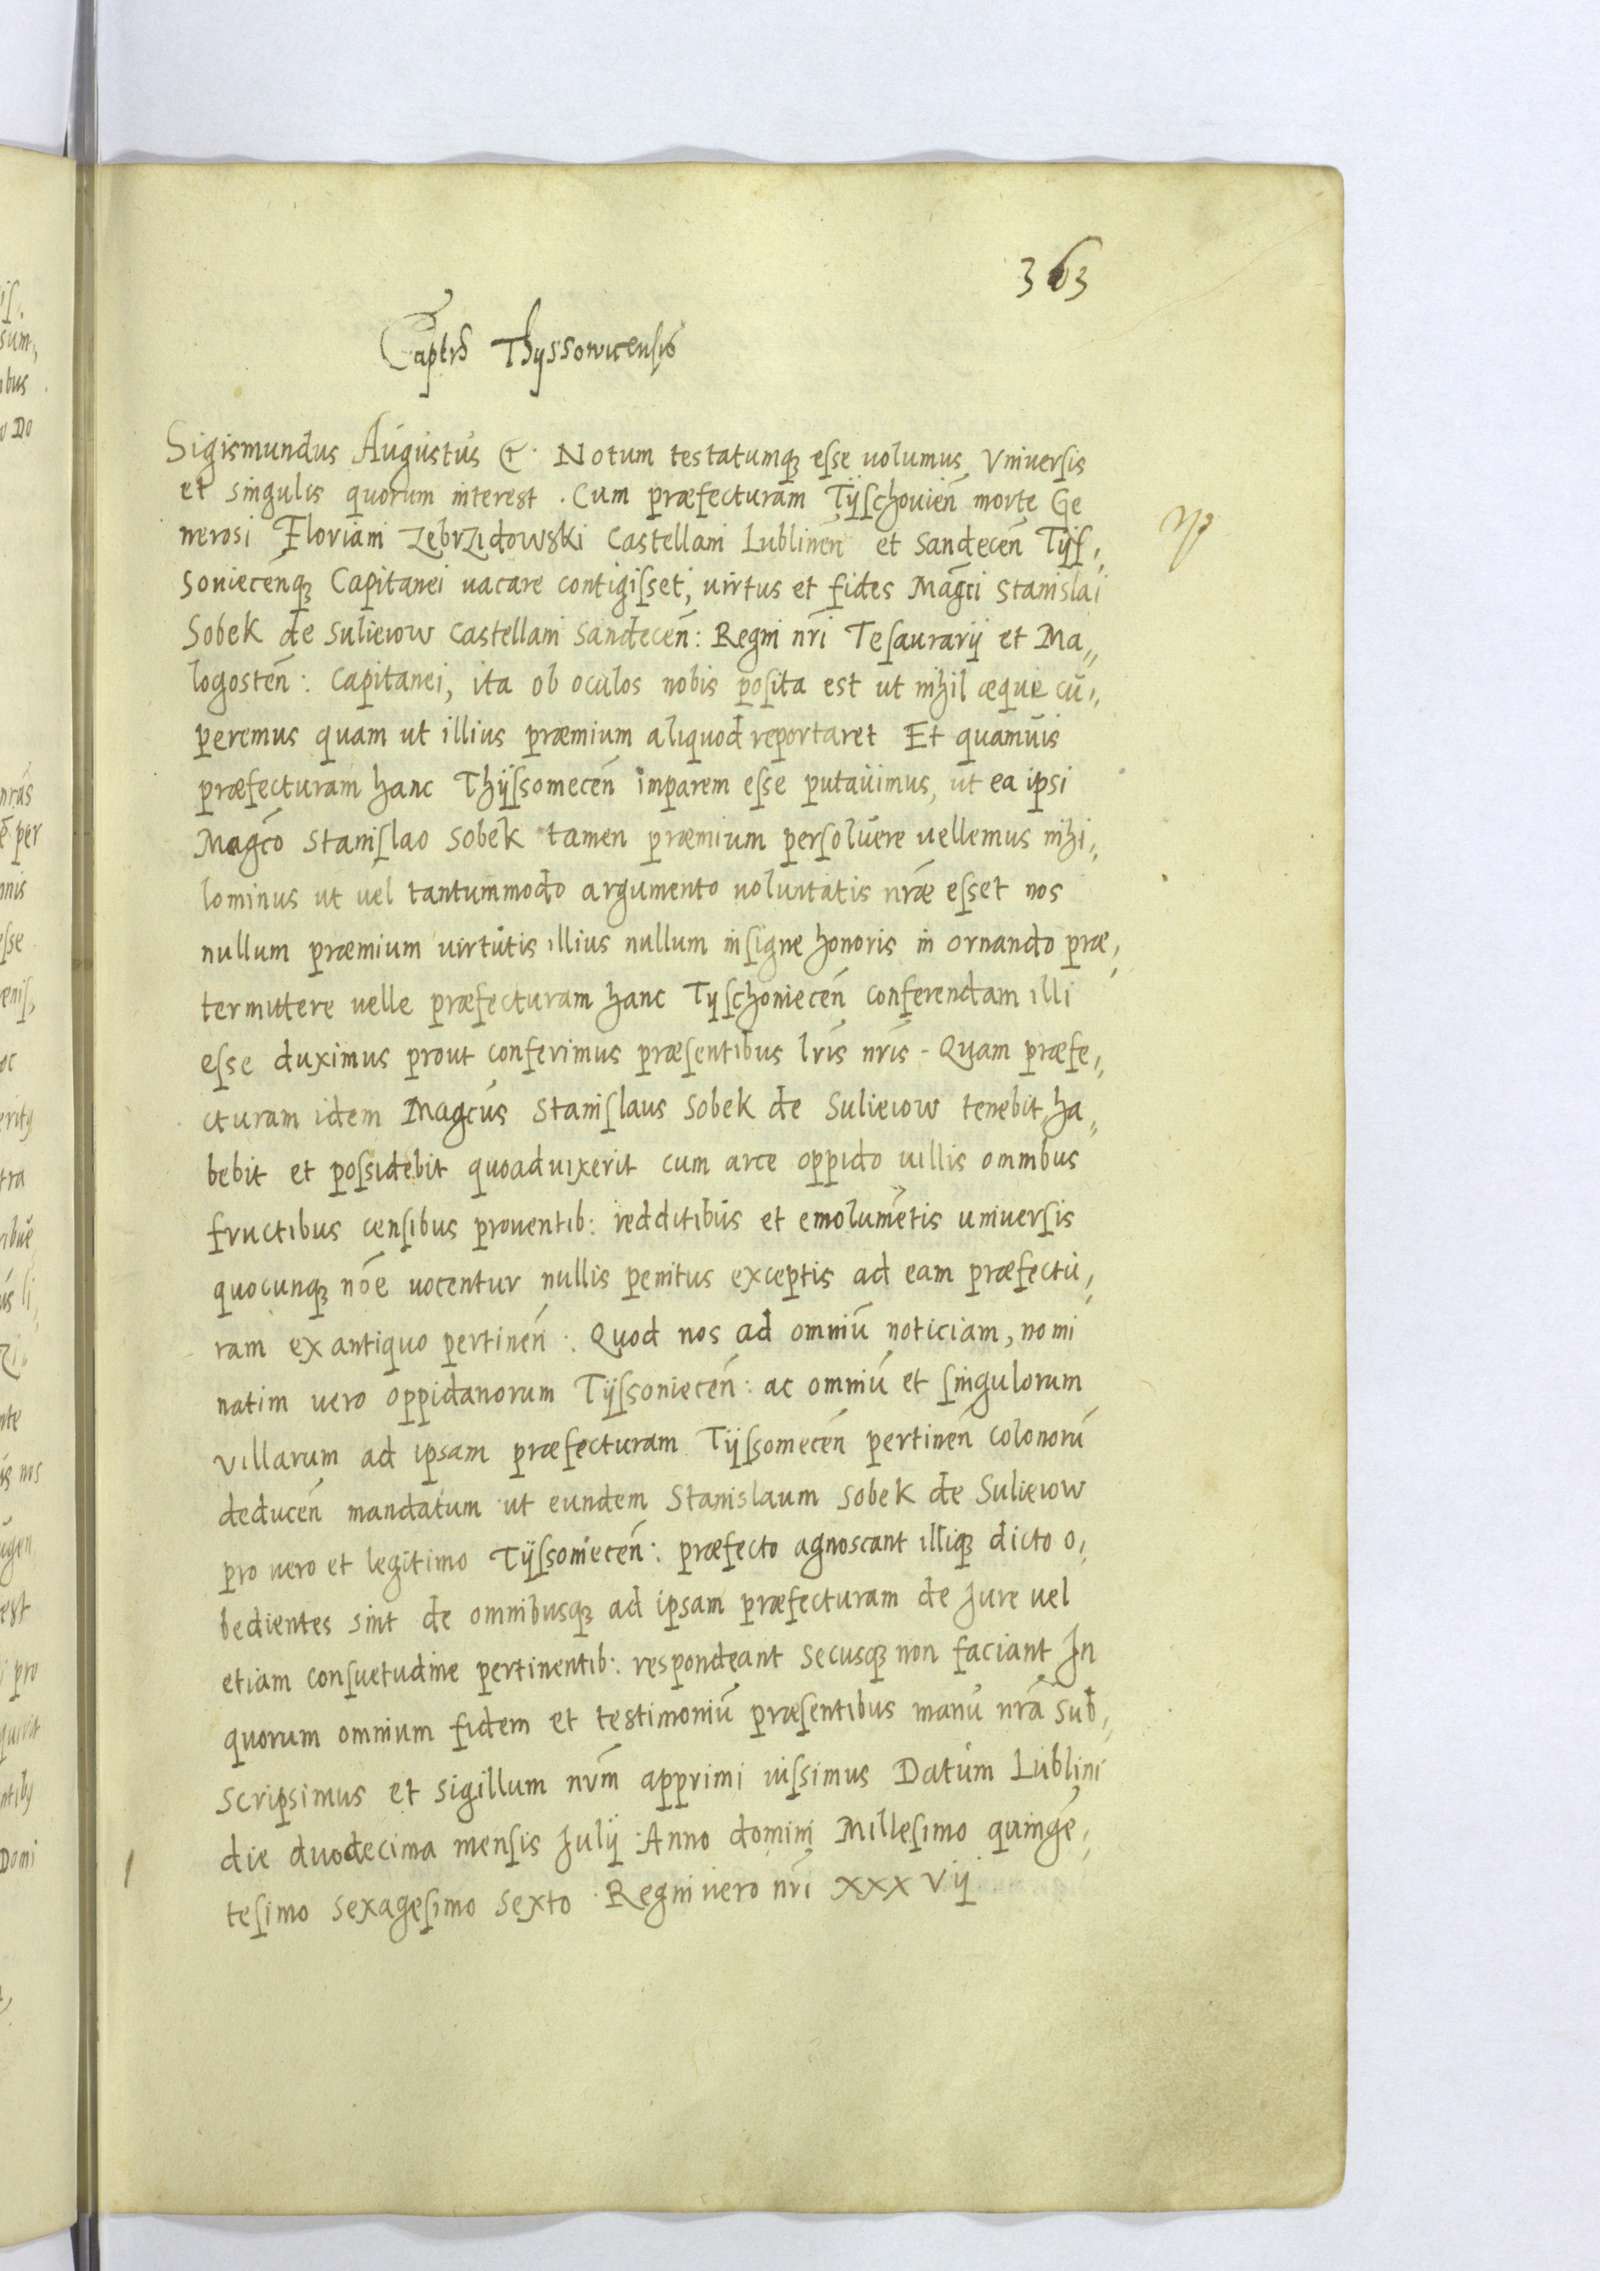 363
Captus Thyssowicensis
Sigismundus Augustus &. Notum testatumqꝫ eſse uolumus Vniuerſis
et singulis quorum interest. Cum præfecturam Tÿſchouien̄ morte Ge
nerosi Floriani Zebrzidowski Castellani Lublinen̄ et Sandecen̄ Tÿſ,
soniecenqꝫ Capitanei uacare contigiſset, virtus et fides Mag̅ci Stanislai
Sobek de Sulieiow Castellani Sandecen̄: Regni nr̄i Teſaurarij et Ma„
logosten̄: Capitanei, ita ob oculos nobis poſita est ut nihil æque cu„
peremus quam ut illius præmium aliquod reportaret Et quamuis
præfecturam hanc Thÿſsoniecen̄ imparem eſse putauimus, ut ea ipsi
Magc̄o Staniſlao Sobek tamen præmium perſoluere uellemus nihi„
lominus ut uel tantummodo argumento uoluntatis nr̄æ eſset nos
nullum præmium virtutis illius nullum inſigne honoris in ornando præ„
termittere uelle præfecturam hanc Tyſchoniecen̄ conferendam illi
eſse duximus prout conferimus præſentibus lr̄is nr̄is - Quam præfe„
cturam idem Magcus Staniſlaus Sobek de Sulieiow tenebit, ha„
bebit et poſsidebit quoaduixerit cum arce oppido uillis omnibus
fructibus cenſibus prouentib: redditibus et emolumētis uniuerſis
quocunqꝫ nōe uocentur nullis penitus exceptis ad eam præfectu„
ram ex antiquo pertinen̄: Quod nos ad omniū noticiam, nomi
natim uero oppidanorum Tÿſsoniecen̄: ac omniū et ſingulorum
villarum ad ipsam præfecturam Tÿſsoniecen̄ pertinen̄ colonorū
deducen̄ mandatum ut eundem Stanislaum Sobek de Sulieiow
pro uero et legitimo Tÿſsoniecen̄: præfecto agnoscant illiqꝫ dicto o„
bedientes sint de omnibusqꝫ ad ipsam præfecturam de Jure uel
etiam conſuetudine pertinentib: respondeant Secusqꝫ non faciant In
quorum omnium fidem et testimoniū præſentibus manu nr̄a Sub„
scripsimus et sigillum nr̄m apprimi iuſsimus Datum Lublini
die duodecima menſis Julij Anno domini Milleſimo quingē„
teſimo Sexageſimo Sexto Regni uero nr̄i XXXVij